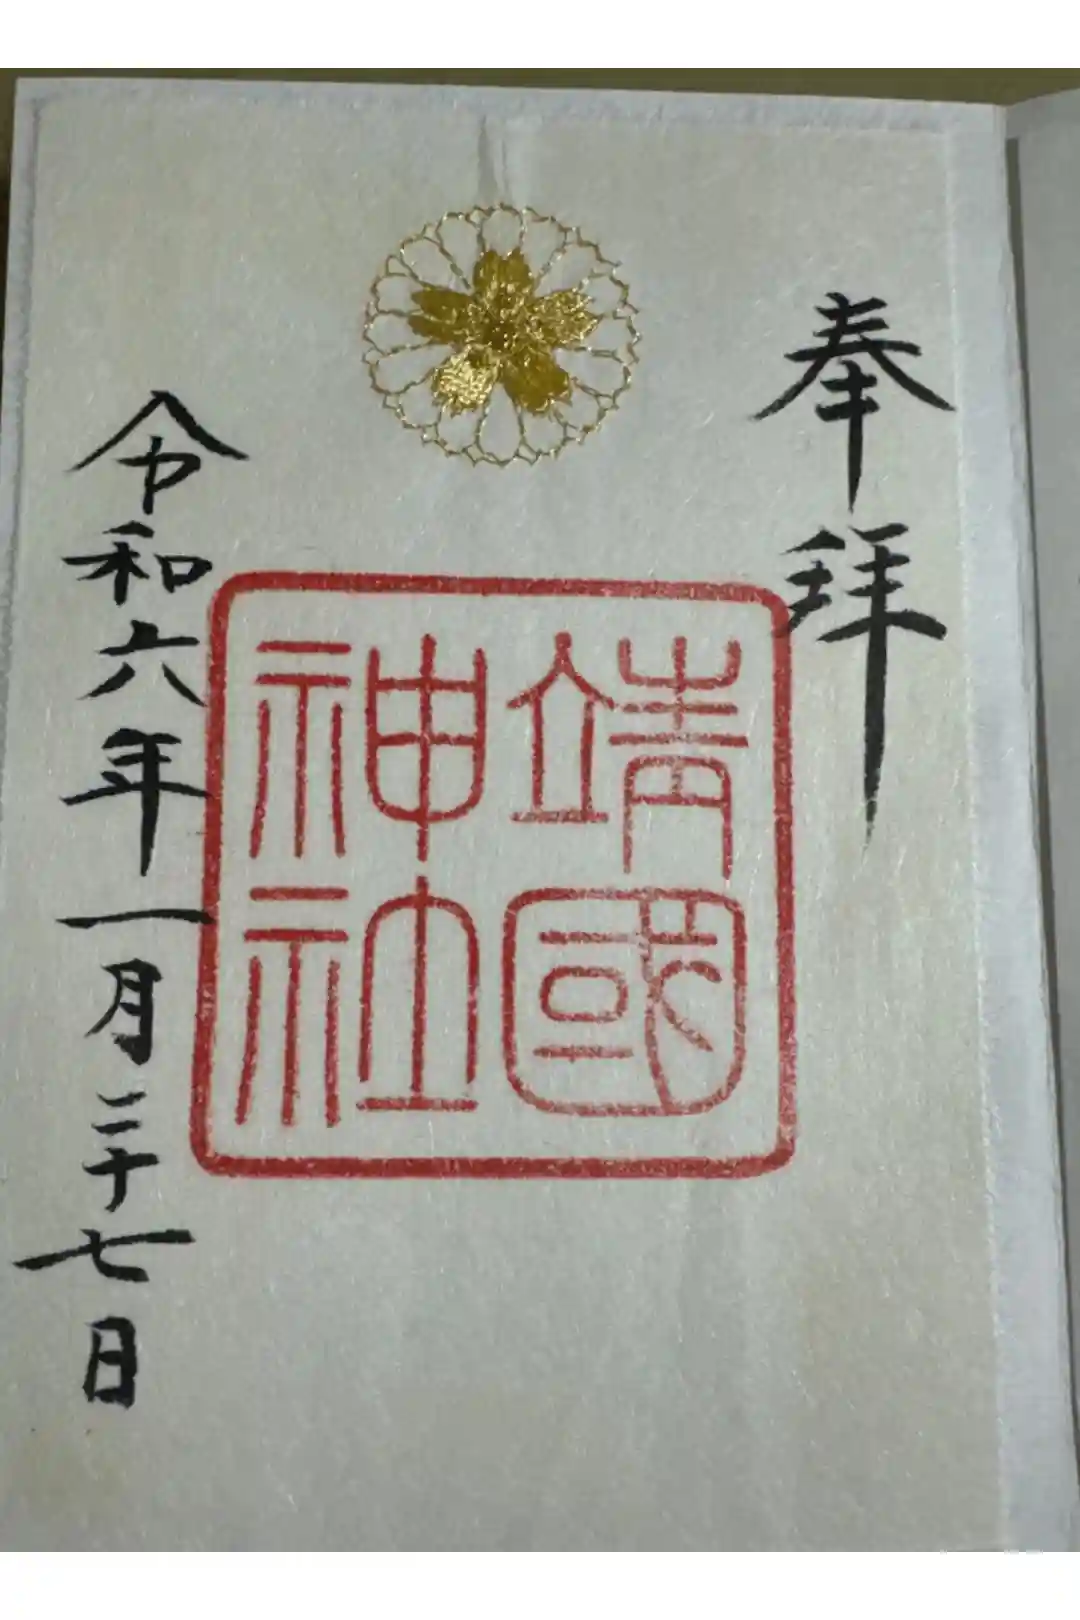 奉拝
靖國
神社
令和六年一月二十七日